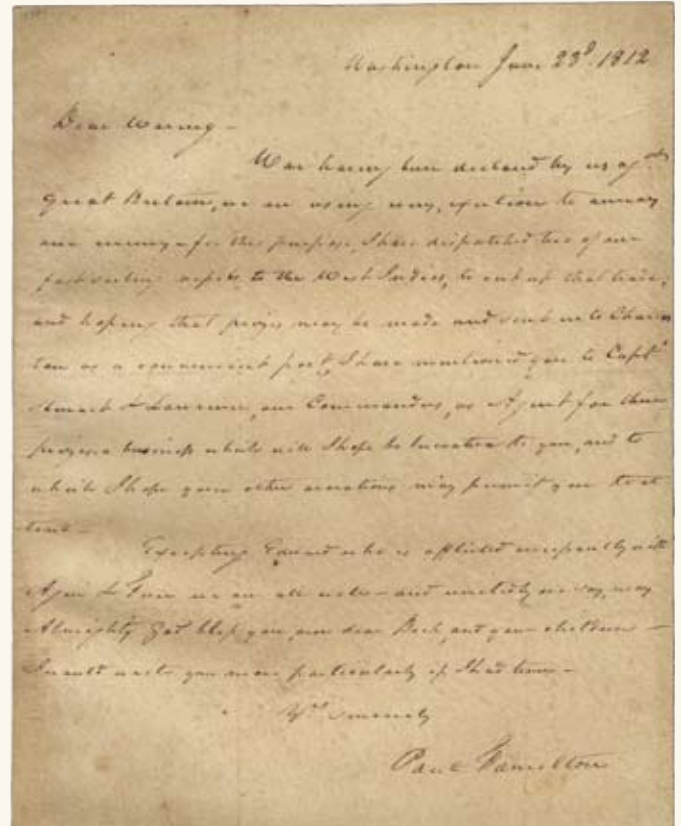 Washington June 23d. 1812
Dear Waring -
War having been declared by us agst
Great Britain, we are using every exertion to annoy
our enemy & for this purpose, I have dispatched two of our
fast sailing to the West Indies, to cut up that trade;
and hoping that prizes may be made and sent in to Charles
ton as a convenient port, I have mentioned you to Captn
& Lawrence, our Commanders, as Agent for their
business which will I hope be lucrative to you, and to
which I hope your other avocations may permit you to at
tend -
Excepting Edward who is afflicted with
Ague & Fever we are all well - and unitedly we say, may
Almighty God bless you, our dear and your children -
I would write you more particularly if I had time -
Yrs sincerely
Paul Hamilton